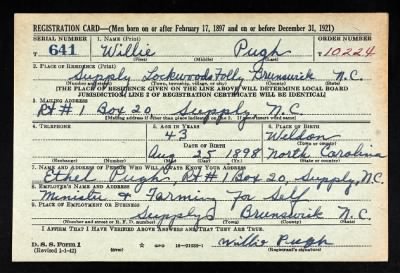 REGISTRATION CARD—(Men born on or after February 17, 1897 and on or before December 31, 1921)
SERIAL NUMBER 1. NAME (Print) ORDER NUMBER
T 641 Willie Pugh 10224
(First) (Middle) (Last)
2. PLACE OF RESIDENCE (Print)
Supply Lockwoods Folly, Brunswick N.C.
(Number and street) (Town, township, village, or city) (County) (State)
[THE PLACE OF RESIDENCE GIVEN ON THE LINE ABOVE WILL DETERMINE LOCAL BOARD
JURISDICTION; LINE 2 OF REGISTRATION CERTIFICATE WILL BE IDENTICAL]
3. MAILING ADDRESS
Rt # 1 Box 20 Supply N.C.
[Mailing address if other than place indicated on line 2. If same insert word same]
4. TELEPHONE 5. AGE IN YEARS 6. PLACE OF BIRTH
43 Weldon
DATE OF BIRTH (Town or county)
Aug 25 1898 North Carolina
(Exchange) (Number) (Mo.) (Day) (Yr.) (State or country)
7. NAME AND ADDRESS OF PERSON WHO WILL ALWAYS KNOW YOUR ADDRESS
Ethel Pugh, Rt # 1 Box 20, Supply, N.C.
8. EMPLOYER'S NAME AND ADDRESS
Minister & Farming For Self
9. PLACE OF EMPLOYMENT OR BUSINESS
Supply Brunswick N.C.
(Number and street or R. F. D. number) (Town) (County) (State)
I AFFIRM THAT I HAVE VERIFIED ABOVE ANSWERS AND THAT THEY ARE TRUE.
D. S. S. Form 1
(Revised 1-1-42) Willie Pugh